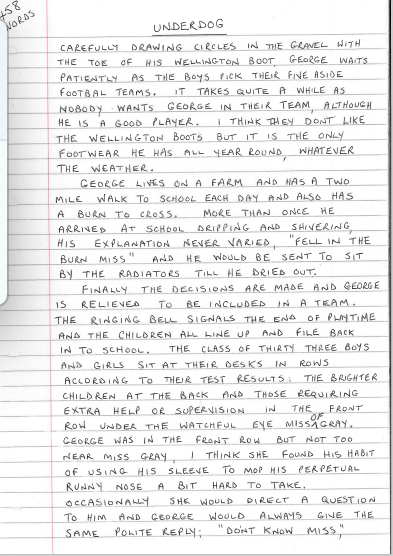 458
WORDS
UNDERDOG
CAREFULLY DRAWING CIRCLES IN THE GRAVEL WITH
THE TOE OF HIS WELLINGTON BOOT, GEORGE WAITS
PATIENTLY AS THE BOYS PICK THEIR FIVE ASIDE
FOOTBAL TEAMS. IT TAKES QUITE A WHILE AS
NOBODY WANTS GEORGE IN THEIR TEAM, ALTHOUGH
HE IS A GOOD PLAYER. I THINK THEY DONT LIKE
THE WELLINGTON BOOTS BUT IT IS THE ONLY
FOOTWEAR HE HAS ALL YEAR ROUND, WHATEVER
THE WEATHER.
GEORGE LIVES ON A FARM AND HAS A TWO
MILE WALK TO SCHOOL EACH DAY AND ALSO HAS
A BURN TO CROSS. MORE THAN ONCE HE
ARRIVED AT SCHOOL DRIPPING AND SHIVERING,
HIS EXPLANATION NEVER VARIED, "FELL IN THE
BURN MISS" AND HE WOULD BE SENT TO SIT
BY THE RADIATORS TILL HE DRIED OUT.
FINALLY THE DECISIONS ARE MADE AND GEORGE
IS RELIEVED TO BE INCLUDED IN A TEAM.
THE RINGING BELL SIGNALS THE END OF PLAYTIME
AND THE CHILDREN ALL LINE UP AND FILE BACK
IN TO SCHOOL. THE CLASS OF THIRTY THREE BOYS
AND GIRLS SIT AT THEIR DESKS IN ROWS
ACCORDING TO THEIR TEST RESULTS: THE BRIGHTER
CHILDREN AT THE BACK AND THOSE REQUIRING
EXTRA HELP OR SUPERVISION IN THE FRONT
ROW UNDER THE WATCHFUL EYE OF MISS GRAY.
GEORGE WAS IN THE FRONT ROW BUT NOT TOO
NEAR MISS GRAY, I THINK SHE FOUND HIS HABIT
OF USING HIS SLEEVE TO MOP HIS PERPETUAL
RUNNY NOSE A BIT HARD TO TAKE.
OCCASIONALLY SHE WOULD DIRECT A QUESTION
TO HIM AND GEORGE WOULD ALWAYS GIVE THE
SAME POLITE REPLY; "DON'T KNOW MISS,"